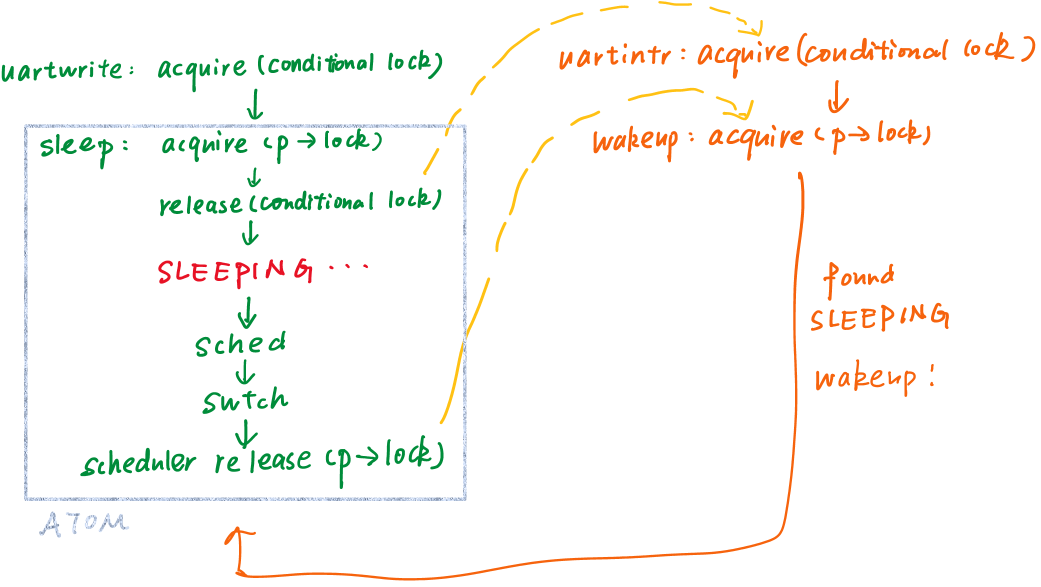 uartwrite: acquire (conditional lock)
sleep: acquire (p→lock)
release (conditional lock)
SLEEPING ...
sched
swtch
scheduler release (p→lock)
ATOM
uartintr: acquire (conditional lock)
wakeup: acquire (p→lock)
found
SLEEPING
wakeup!